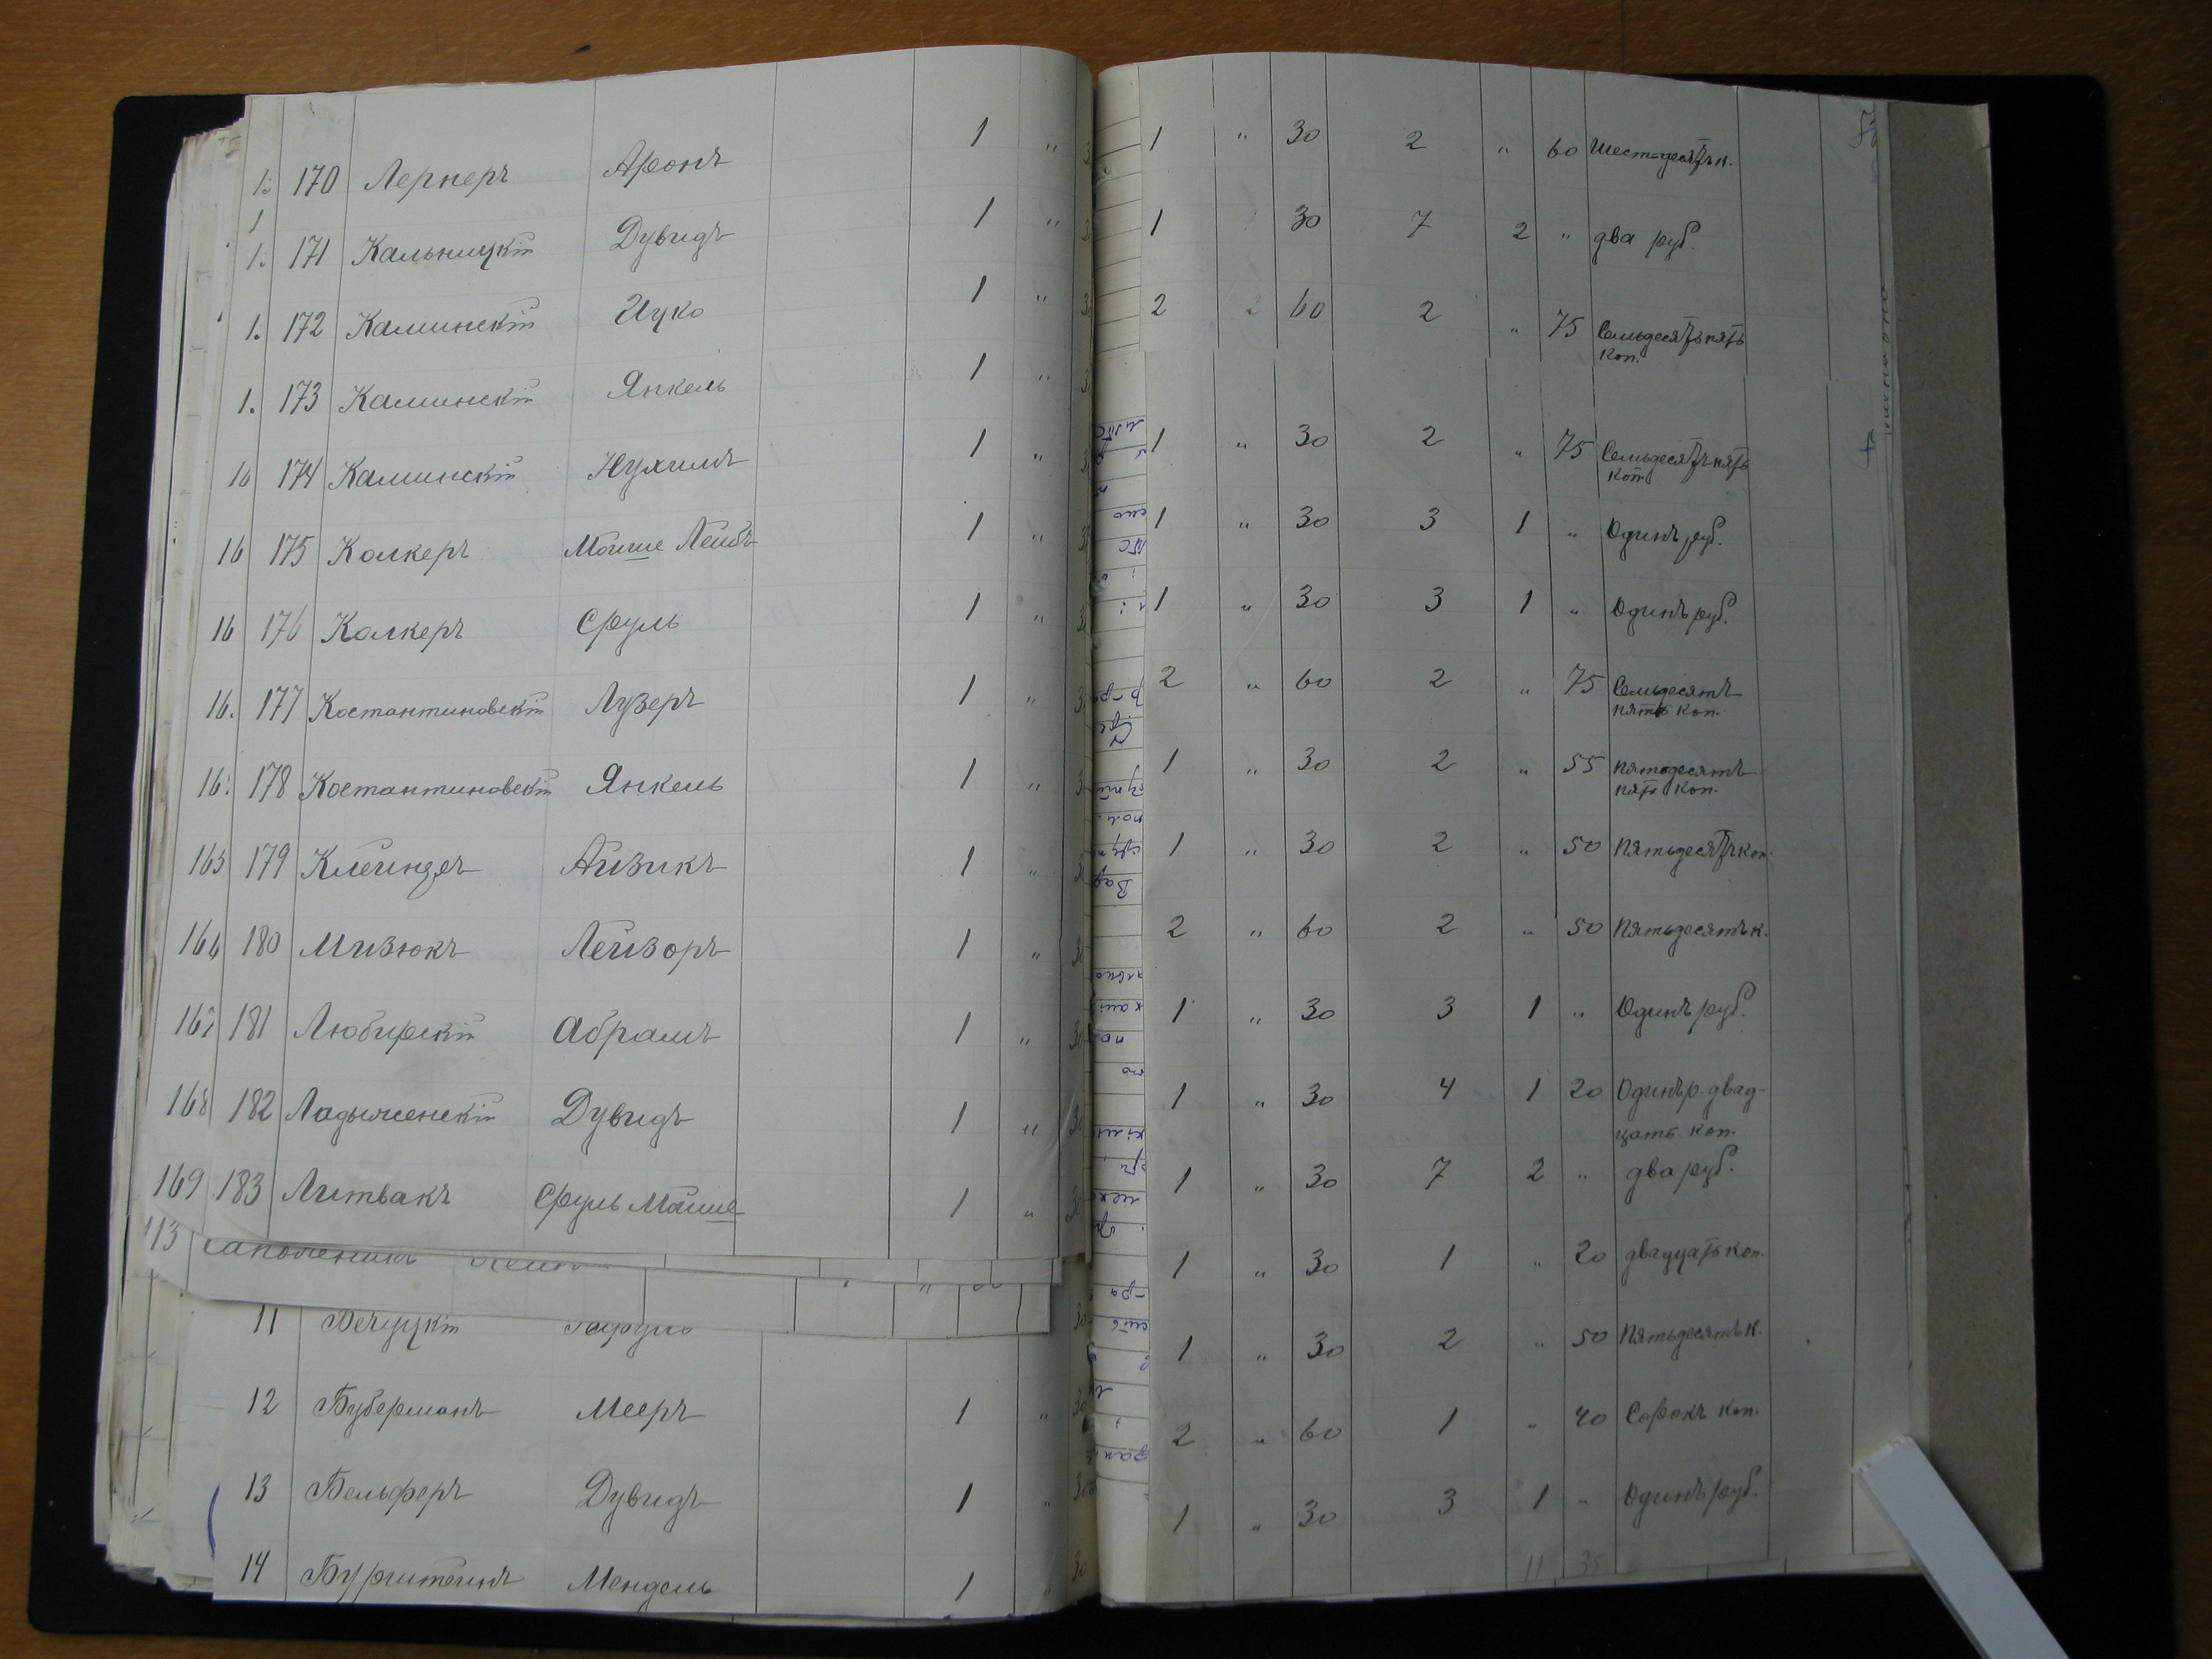 170 Лернеръ Аронъ 1 "
171 Кальницкій Дувидъ 1 "
1. 172 Каминскій Ицко 1 "
1. 173 Каминскій Янкель 1 "
16 174 Каминскій Нухимъ 1 "
16 175 Колкеръ Мойше Лейбъ 1 "
16 176 Колкеръ Сруль 1 "
16. 177 Костантиновскій Лузеръ 1 "
16 178 Костантиновскій Янкель 1 "
165 179 Айзикъ 1 "
166 180 Мизюкъ Лейзоръ 1 "
167 181 Любирскій Абрамъ 1 " 30
168 182 Ладыженскій Дувидъ 1 " 30
169 183 Литвакъ Сруль Мойше 1 " 30
113
11
12 Буберманъ Мееръ 1 " 30
13 Бельферъ Дувидъ 1 " 30
14 Бургштейнъ Мендель 1 " 30
1 " 30 2 " 60 Шестьдесятъ к.
1 30 7 2 " два руб.
2 60 2 " 75 Семьдесятъ пять
коп.
1 " 30 2 " 75 Семьдесятъ пять
коп.
1 " 30 3 1 " Одинъ руб.
1 " 30 3 1 " Одинъ руб.
2 " 60 2 " 75 Семьдесятъ
пять коп.
1 " 30 2 " 55 Пятьдесятъ
пять коп.
1 " 30 2 " 50 Пятьдесятъ коп.
2 " 60 2 " 50 Пятьдесятъ к.
1 " 30 3 1 " Одинъ руб.
1 " 30 4 1 20 Одинъ р. двад-
цать коп.
1 " 30 7 2 " два руб.
1 " 30 1 " 20 двадцать коп.
1 " 30 2 " 50 Пятьдесятъ к.
2 " 60 1 " 40 Сорокъ коп.
1 " 30 3 1 " Одинъ руб.
11 35